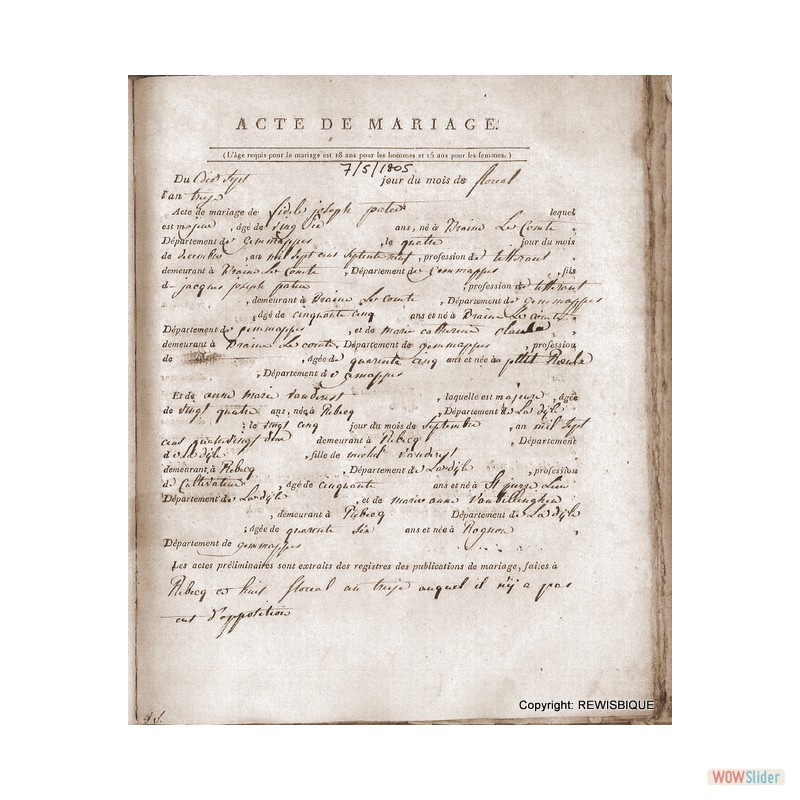 ACTE DE MARIAGE.
(L'âge requis pour le mariage est 18 ans pour les hommes et 15 ans pour les femmes.)
7/5/1805
Du Dix Sept jour du mois de floreal
l'an treize
Acte de mariage de fidele joseph lequel
est majeur, âgé de vingt Six ans, né à Braine Le Comte
Département de Gemmappes, le quatre jour du mois
de decembre, an mil Sept cent Septente neuf, profession de
demeurant à Braine Le Comte, Département de Gemmappes, fils
de jacques joseph, profession de
, demeurant à Braine Le Comte, Département de gemmappes
, âgé de cinquante cinq ans et né à Braine Le Comte
Département de gemmappes, et de marie catherine
demeurant à Braine Le Comte, Département de gemmappes, profession
de , âgée de quarente cinq ans et née à petit
, Département de gemappes
Et de anne marie, laquelle est majeure, âgée
de vingt quatre ans, née à Rebecq, Département de La dijle
, le vingt cinq jour du mois de Septembre, an mil Sept
cent demeurant à Rebecq, Département
de La dijle, fille de michel
demeurant à Rebecq, Département de La dijle, profession
de Cultivateur, âgé de cinquante ans et né à St
Département de La dijle, et de marie anne
, demeurant à Rebecq Département de La dijle
, âgée de quarente Six ans et née à
Département de gemmappes
Les actes préliminaires sont extraits des registres des publications de mariage, faites à
Rebecq et huit floreal an treize auquel il n'ij a pas
eut d'opposition
Copyright: REWISBIQUE
WOWSlider